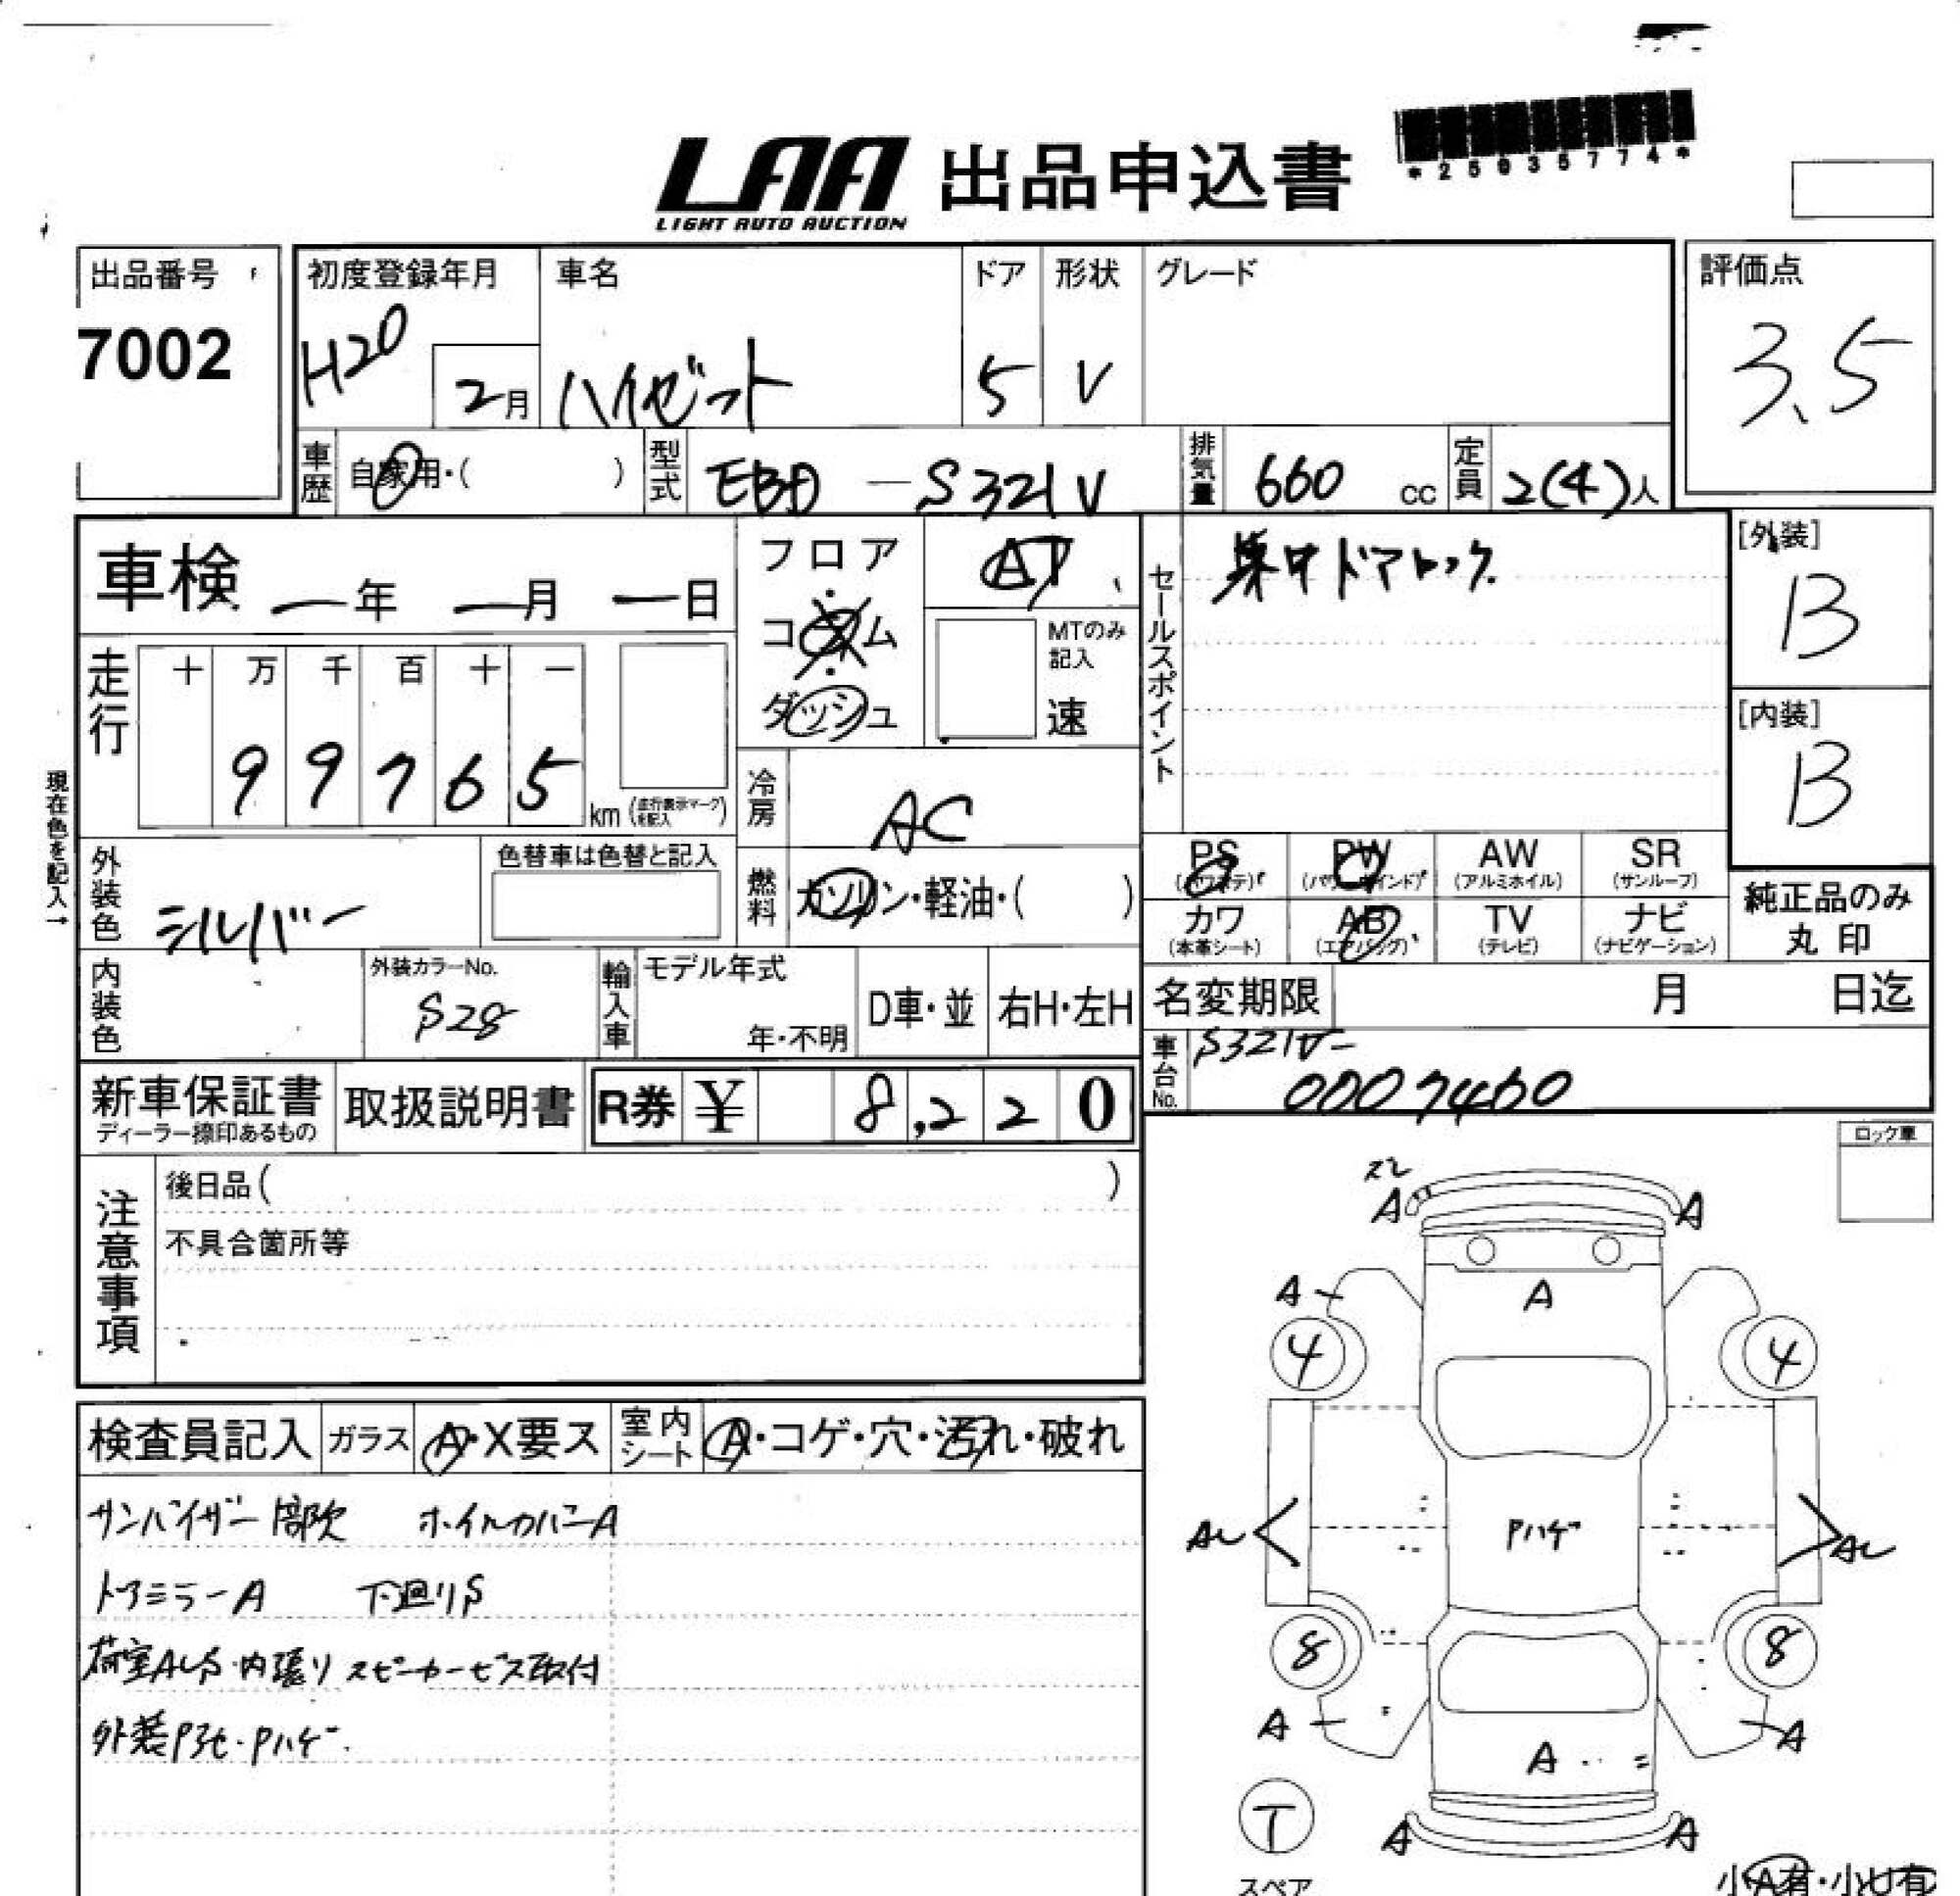 LAA 出品申込書
LIGHT AUTO AUCTION
*25035774*
出品番号
7002
初度登録年月
H20
2月
車名
ハイゼット
ドア
5
形状
V
グレード
評価点
3.5
車歴 自家用・( )
型式 EBD-S321V
排気量 660 cc
定員 2(4)人
車検 ー年 ー月 ー日
フロア・コラム・ダッシュ
AT
MTのみ記入
速
セールスポイント
集中ドアロック
[外装]
B
[内装]
B
走行
十 万 千 百 十 一
9 9 7 6 5
km (走行表示マークを記入)
現在色を記入→
冷房 AC
燃料 ガソリン・軽油・( )
外装色 シルバー
色替車は色替と記入
PS (パワステ)
PW (パワーウインド)
AW (アルミホイル)
SR (サンルーフ)
カワ (本革シート)
AB (エアバッグ)
TV (テレビ)
ナビ (ナビゲーション)
純正品のみ
丸印
内装色
外装カラーNo.
S28
輸入車
モデル年式
年・不明
D車・並
右H・左H
名変期限 月 日迄
車台No.
S321V-
0007460
新車保証書
ディーラー捺印あるもの
取扱説明書
R券 ¥ 8,220
ロック車
注意事項
後日品( )
不具合箇所等
検査員記入
ガラス A・X要ス
室内シート A・コゲ・穴・汚れ・破れ
サンバイザー部欠 ホイルカバーA
ドアミラーA 下廻りS
荷室AUS・内張りスピーカービス取付
外装P3セ・Pハゲ
ズレ
A A
A
A
4 4
AU Pハゲ AU
8 8
A A
A
T
スペア
A A
小A有・小U有